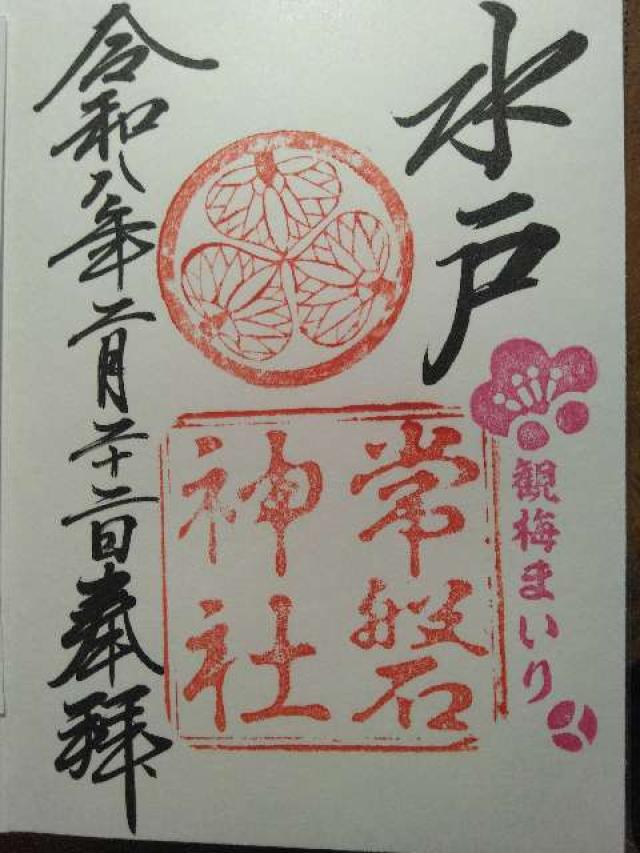 水戸
観梅まいり
常磐
神社
令和八年二月二十二日奉拝